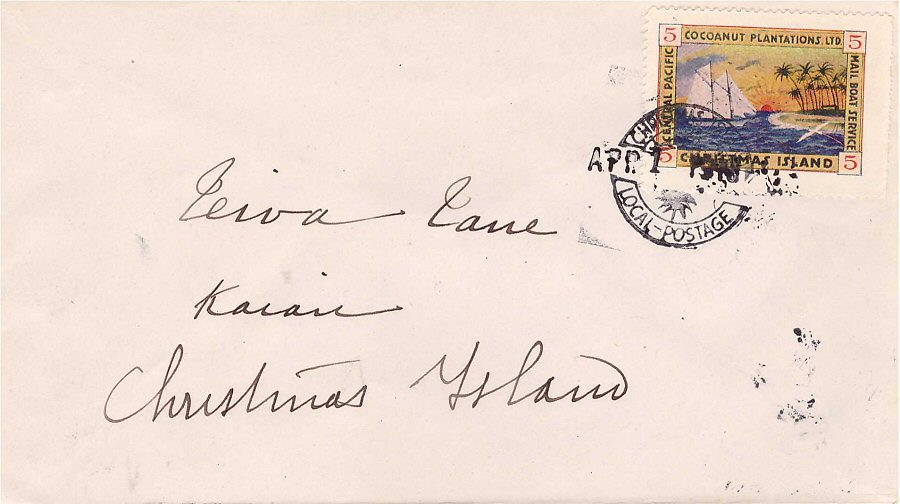 5 COCOANUT PLANTATIONS LTD. 5
CENTRAL PACIFIC
MAIL BOAT SERVICE
5 CHRISTMAS ISLAND 5
CHRISTMAS
APR 1
LOCAL-POSTAGE
Teiva Tane
Christmas Island